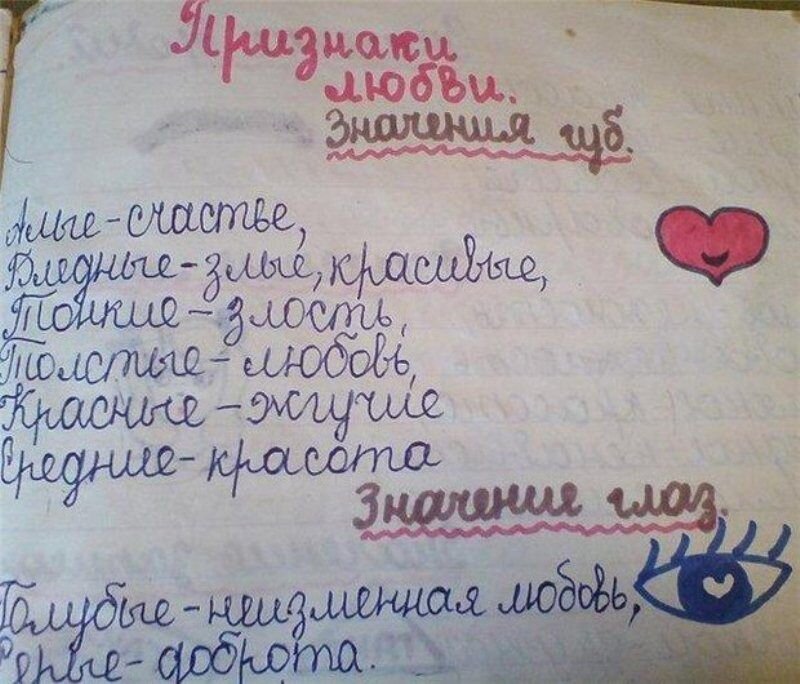 Признаки
любви.
Значения губ.
Алые - счастье,
Бледные - злые, красивые,
Тонкие - злость,
Толстые - любовь,
Красные - жгучие
Средние - красота
Значение глаз.
Голубые - неизменная любовь,
Серые - доброта.